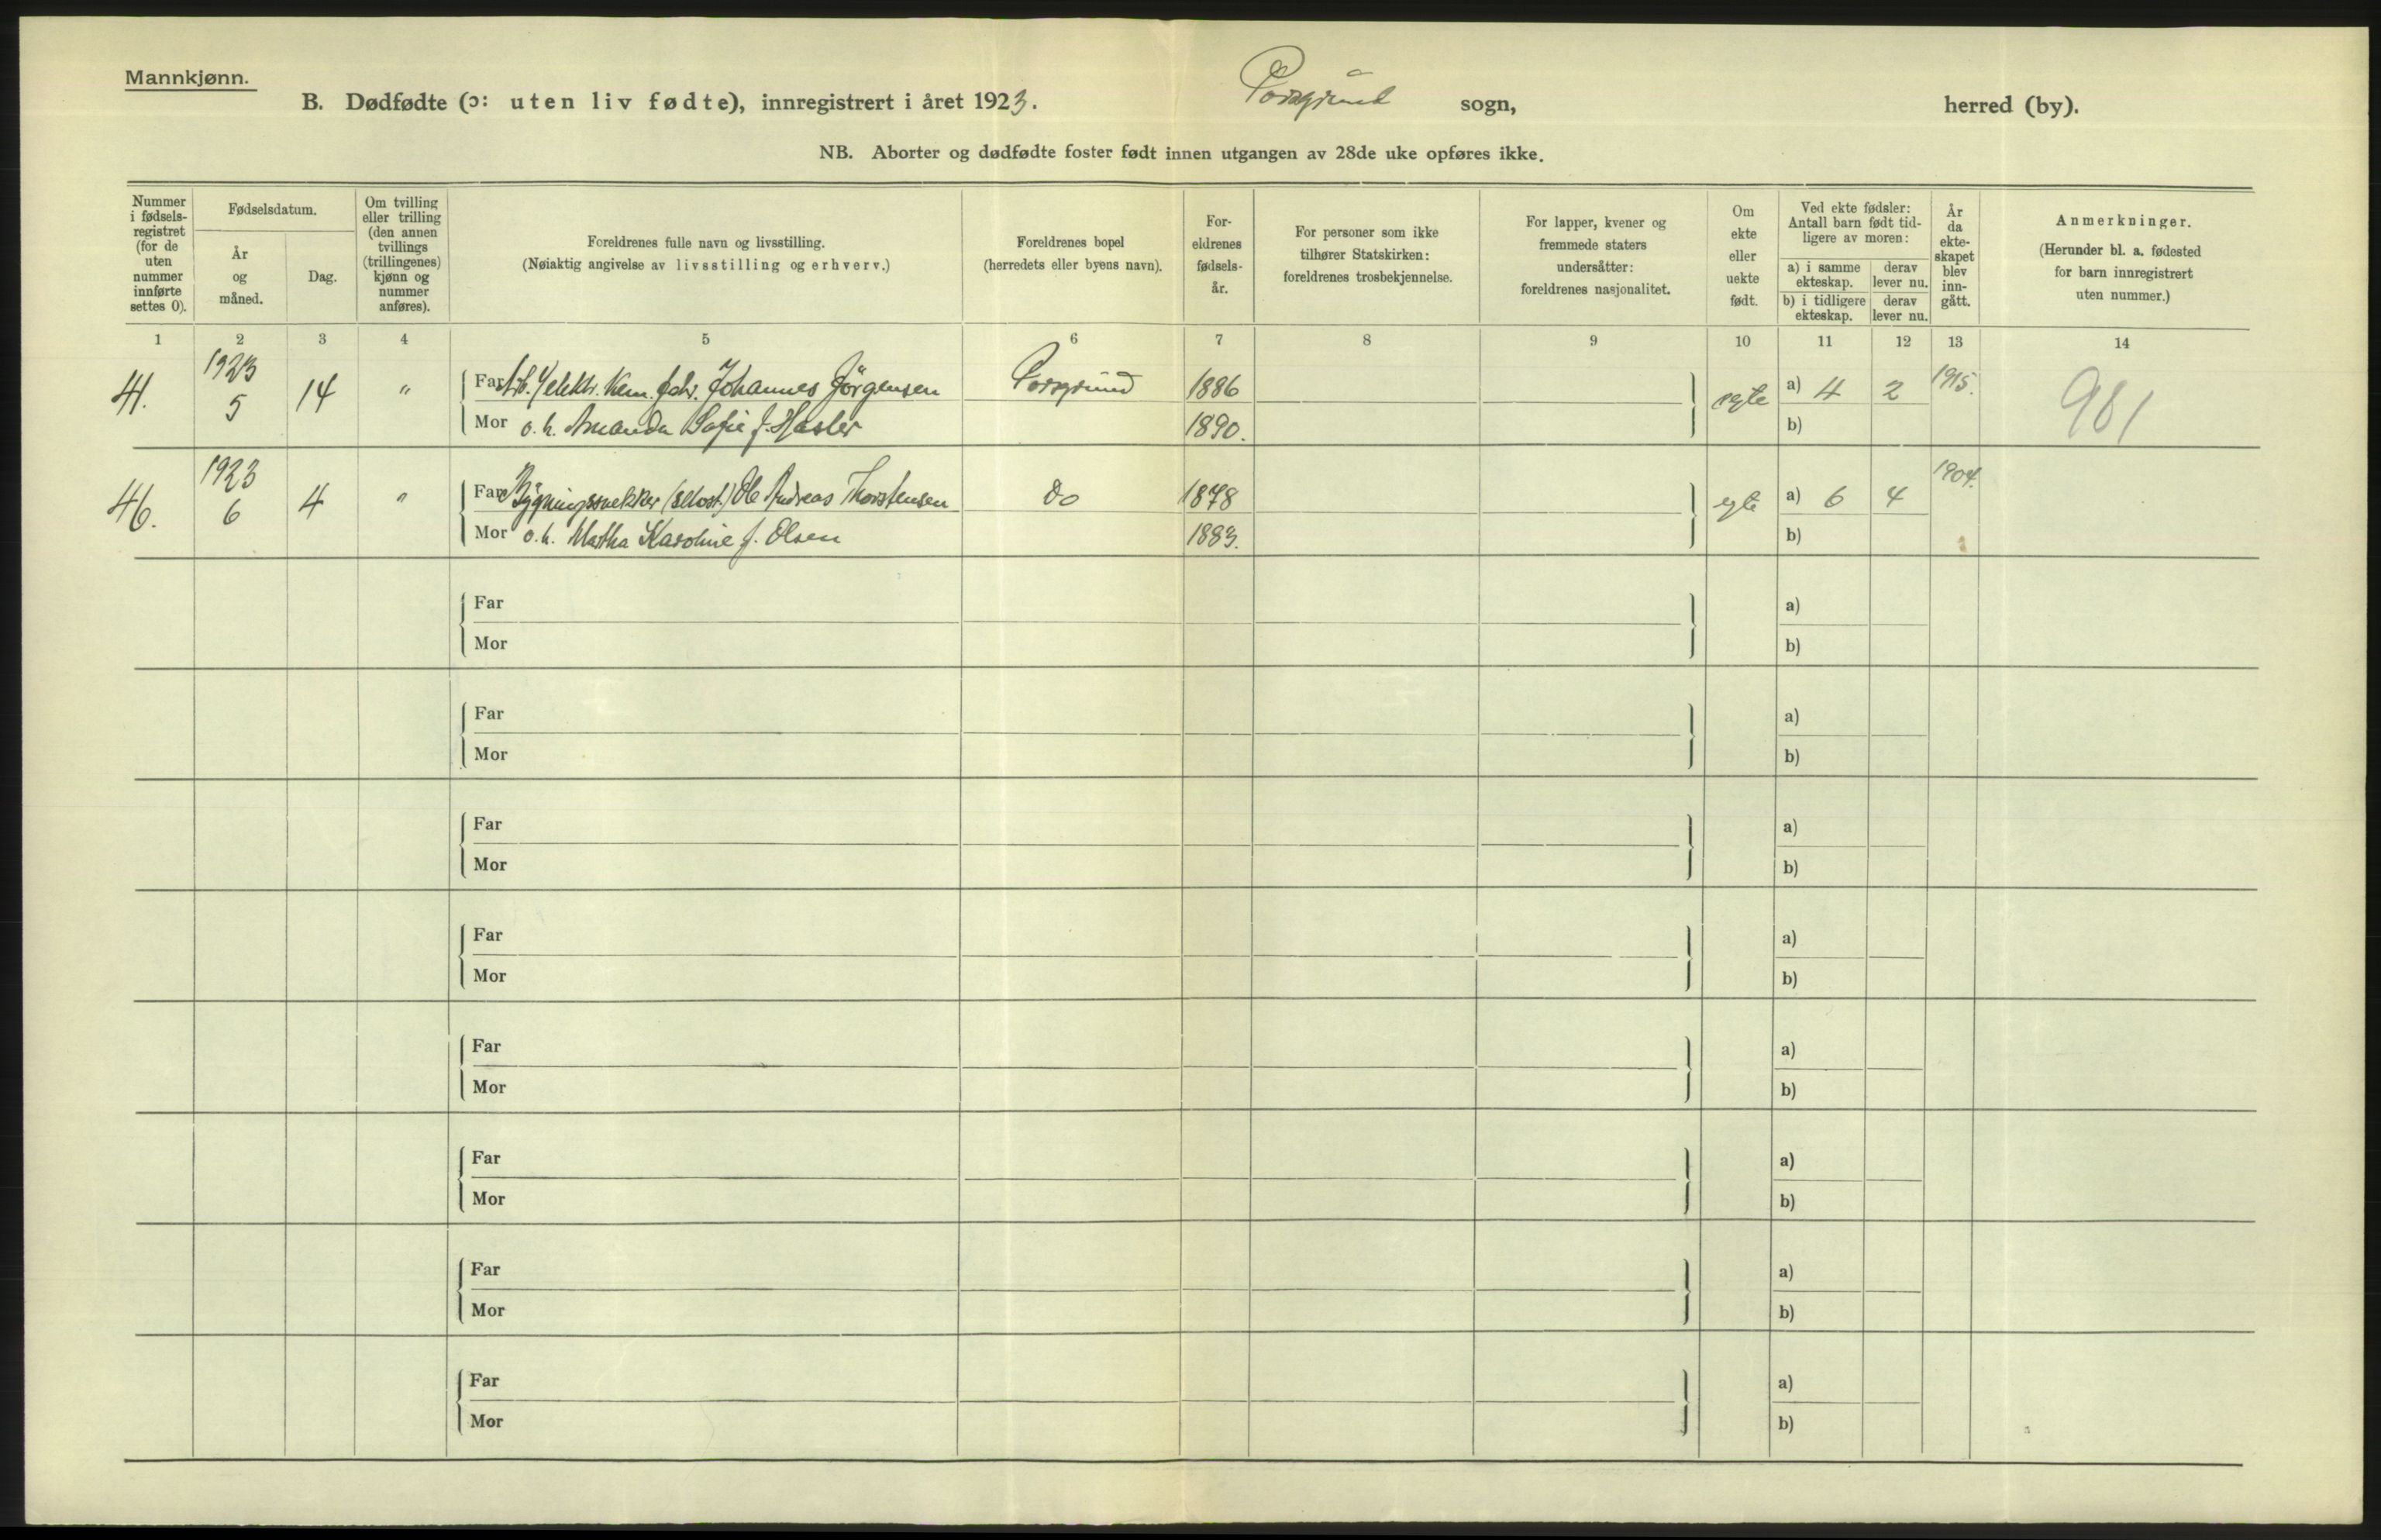 Mannkjønn.
B. Dødfødte (ɔ: uten liv fødte), innregistrert i året 1923. Porsgrund sogn, herred (by).
NB. Aborter og dødfødte foster født innen utgangen av 28de uke opføres ikke.
Nummer i fødselsregistret (for de uten nummer innførte settes 0).
Fødselsdatum.
År og måned.
Dag.
Om tvilling eller trilling (den annen tvillings (trillingenes) kjønn og nummer anføres).
Foreldrenes fulle navn og livsstilling.
(Nøiaktig angivelse av livsstilling og erhverv.)
Foreldrenes bopel
(herredets eller byens navn).
Foreldrenes fødselsår.
For personer som ikke tilhører Statskirken: foreldrenes trosbekjennelse.
For lapper, kvener og fremmede staters undersåtter: foreldrenes nasjonalitet.
Om ekte eller uekte født.
Ved ekte fødsler: Antall barn født tidligere av moren:
a) i samme ekteskap. derav lever nu.
b) i tidligere ekteskap. derav lever nu.
År da ekteskapet blev inngått.
Anmerkninger.
(Herunder bl. a. fødested for barn innregistrert uten nummer.)
1 2 3 4 5 6 7 8 9 10 11 12 13 14
41. 1923 5 14 " Far Arb. v/elektr. kem. fabr. Johannes Jörgensen Porsgrund 1886 egte a) 4 2 1915. 981
Mor o. h. Amanda Sofie f. Hasler 1890. b)
46. 1923 6 4 " Far Bygningssnekker (selvst.) Ole Andreas Thorstensen do 1878 egte a) 6 4 1904.
Mor o. h. Martha Karoline f. Olsen 1883. b)
Far a)
Mor b)
Far a)
Mor b)
Far a)
Mor b)
Far a)
Mor b)
Far a)
Mor b)
Far a)
Mor b)
Far a)
Mor b)
Far a)
Mor b)